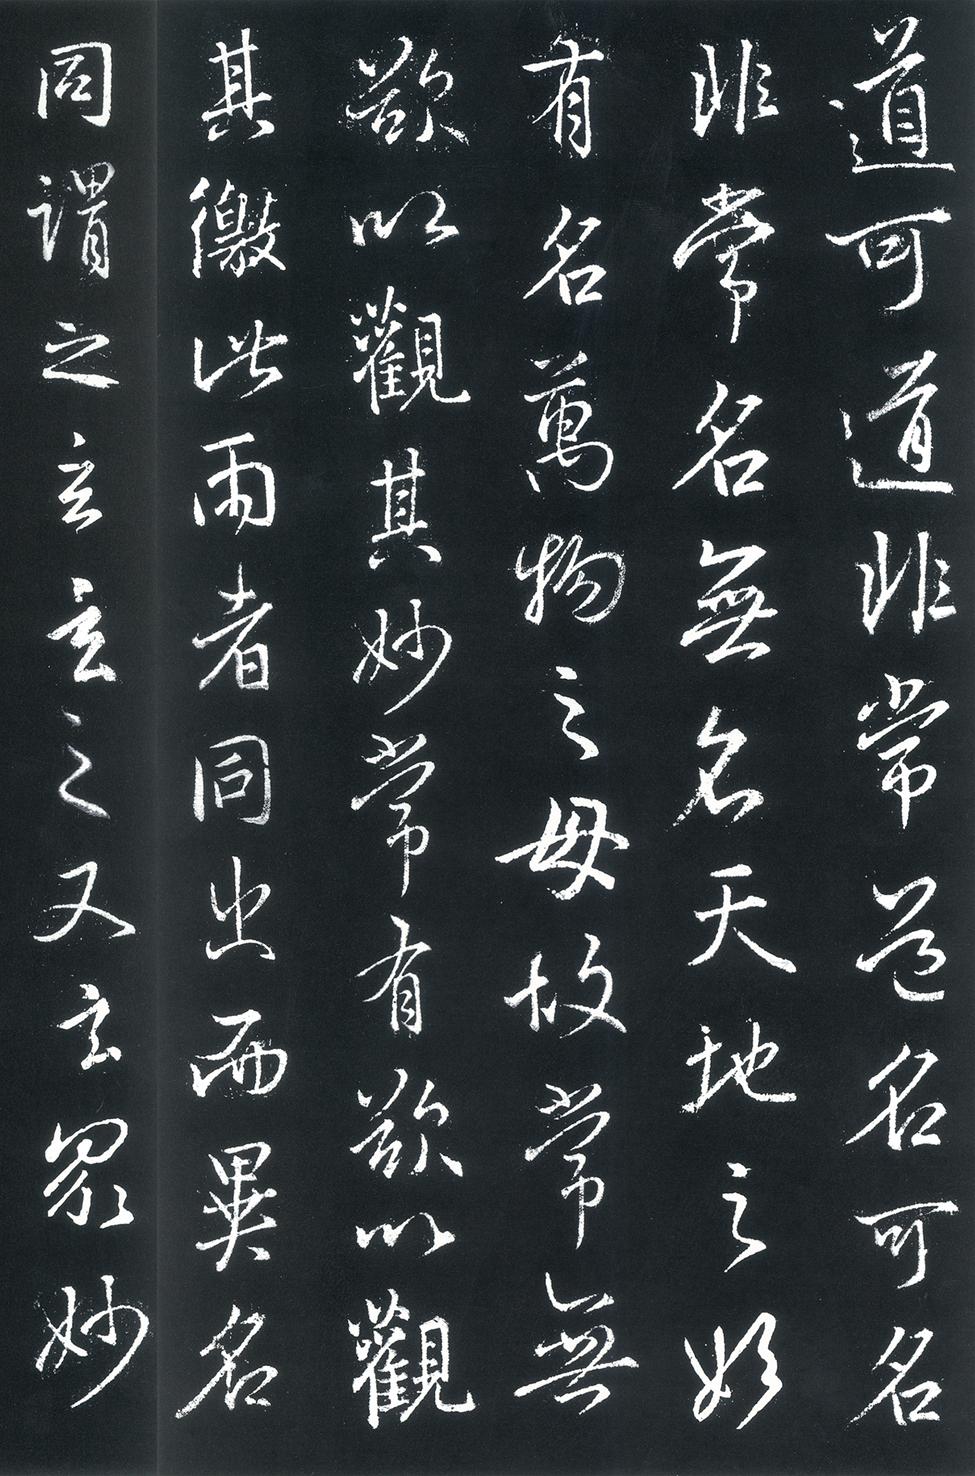 道可道非常道名可名
非常名無名天地之始
有名萬物之母故常無
欲以觀其妙常有欲以觀
其徼此兩者同出而異名
同謂之玄玄之又玄眾妙